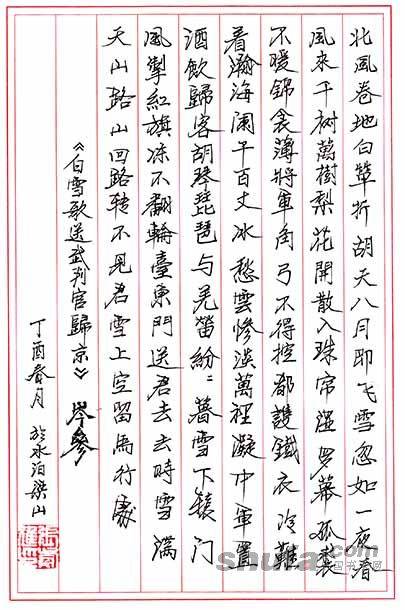 北風卷地白草折胡天八月即飞雪忽如一夜春
風來千树萬樹梨花開散入珠帘湿罗幕狐裘
不暖錦衾薄將軍角弓不得控都護鐵衣冷難
着瀚海阑干百丈冰愁雲慘淡萬裡凝中軍置
酒飲歸客胡琴琵琶与羌笛紛〻暮雪下辕门
風掣紅旗冻不翻輪臺東門送君去去時雪滿
天山路山回路转不見君雪上空留馬行處
《白雪歌送武判官歸京》 岑參
丁酉春月 於水泊梁山